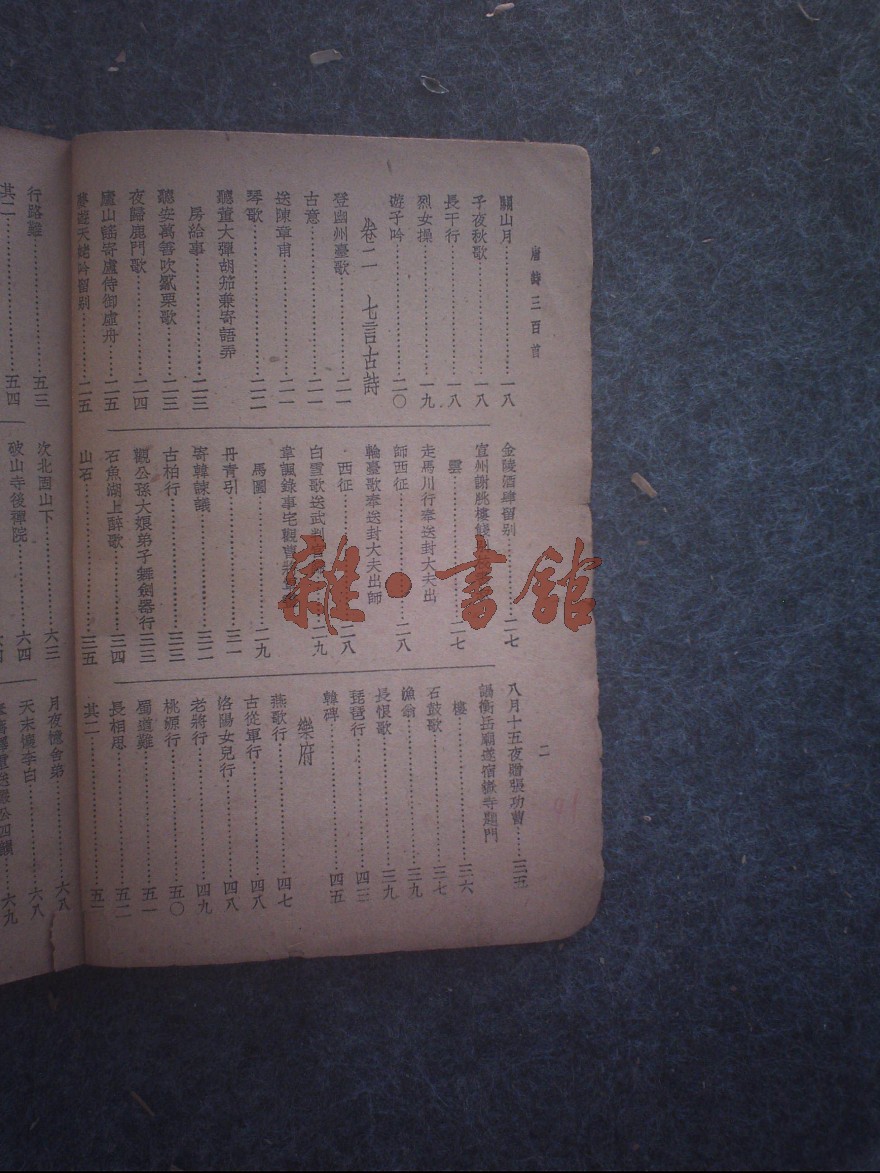 唐詩三百首
關山月……一八
子夜秋歌……一八
長干行……一八
烈女操……一九
遊子吟……二〇
卷二 七言古詩
登幽州臺歌……二一
古意……二一
送陳章甫……二一
琴歌……二二
聽董大彈胡笳兼寄語弄
房給事……二三
聽安萬善吹觱栗歌……二三
夜歸鹿門歌……二四
廬山謠寄盧侍御虛舟……二五
夢遊天姥吟留別……二五
金陵酒肆留別……二七
宣州謝朓樓餞
雲……二七
走馬川行奉送封大夫出
師西征……二八
輪臺歌奉送封大夫出師
西征……二八
白雪歌送武判官歸……二九
韋諷錄事宅觀曹將軍畫
馬圖……二九
丹青引……三一
寄韓諫議……三二
古柏行……三三
觀公孫大娘弟子舞劍器行……三三
石魚湖上醉歌……三四
山石……三五
二
八月十五夜贈張功曹……三五
謁衡岳廟遂宿嶽寺題門
樓……三六
石鼓歌……三七
漁翁……三九
長恨歌……三九
琵琶行……四三
韓碑……四五
樂府
燕歌行……四七
古從軍行……四八
洛陽女兒行……四八
老將行……四九
桃源行……五〇
蜀道難……五一
長相思……五二
其二……五二
行路難……五三
其二……五四
次北固山下……六三
破山寺後禪院……六四
月夜憶舍弟……六八
天末懷李白……六八
送嚴公四韻……六九
雜·書館